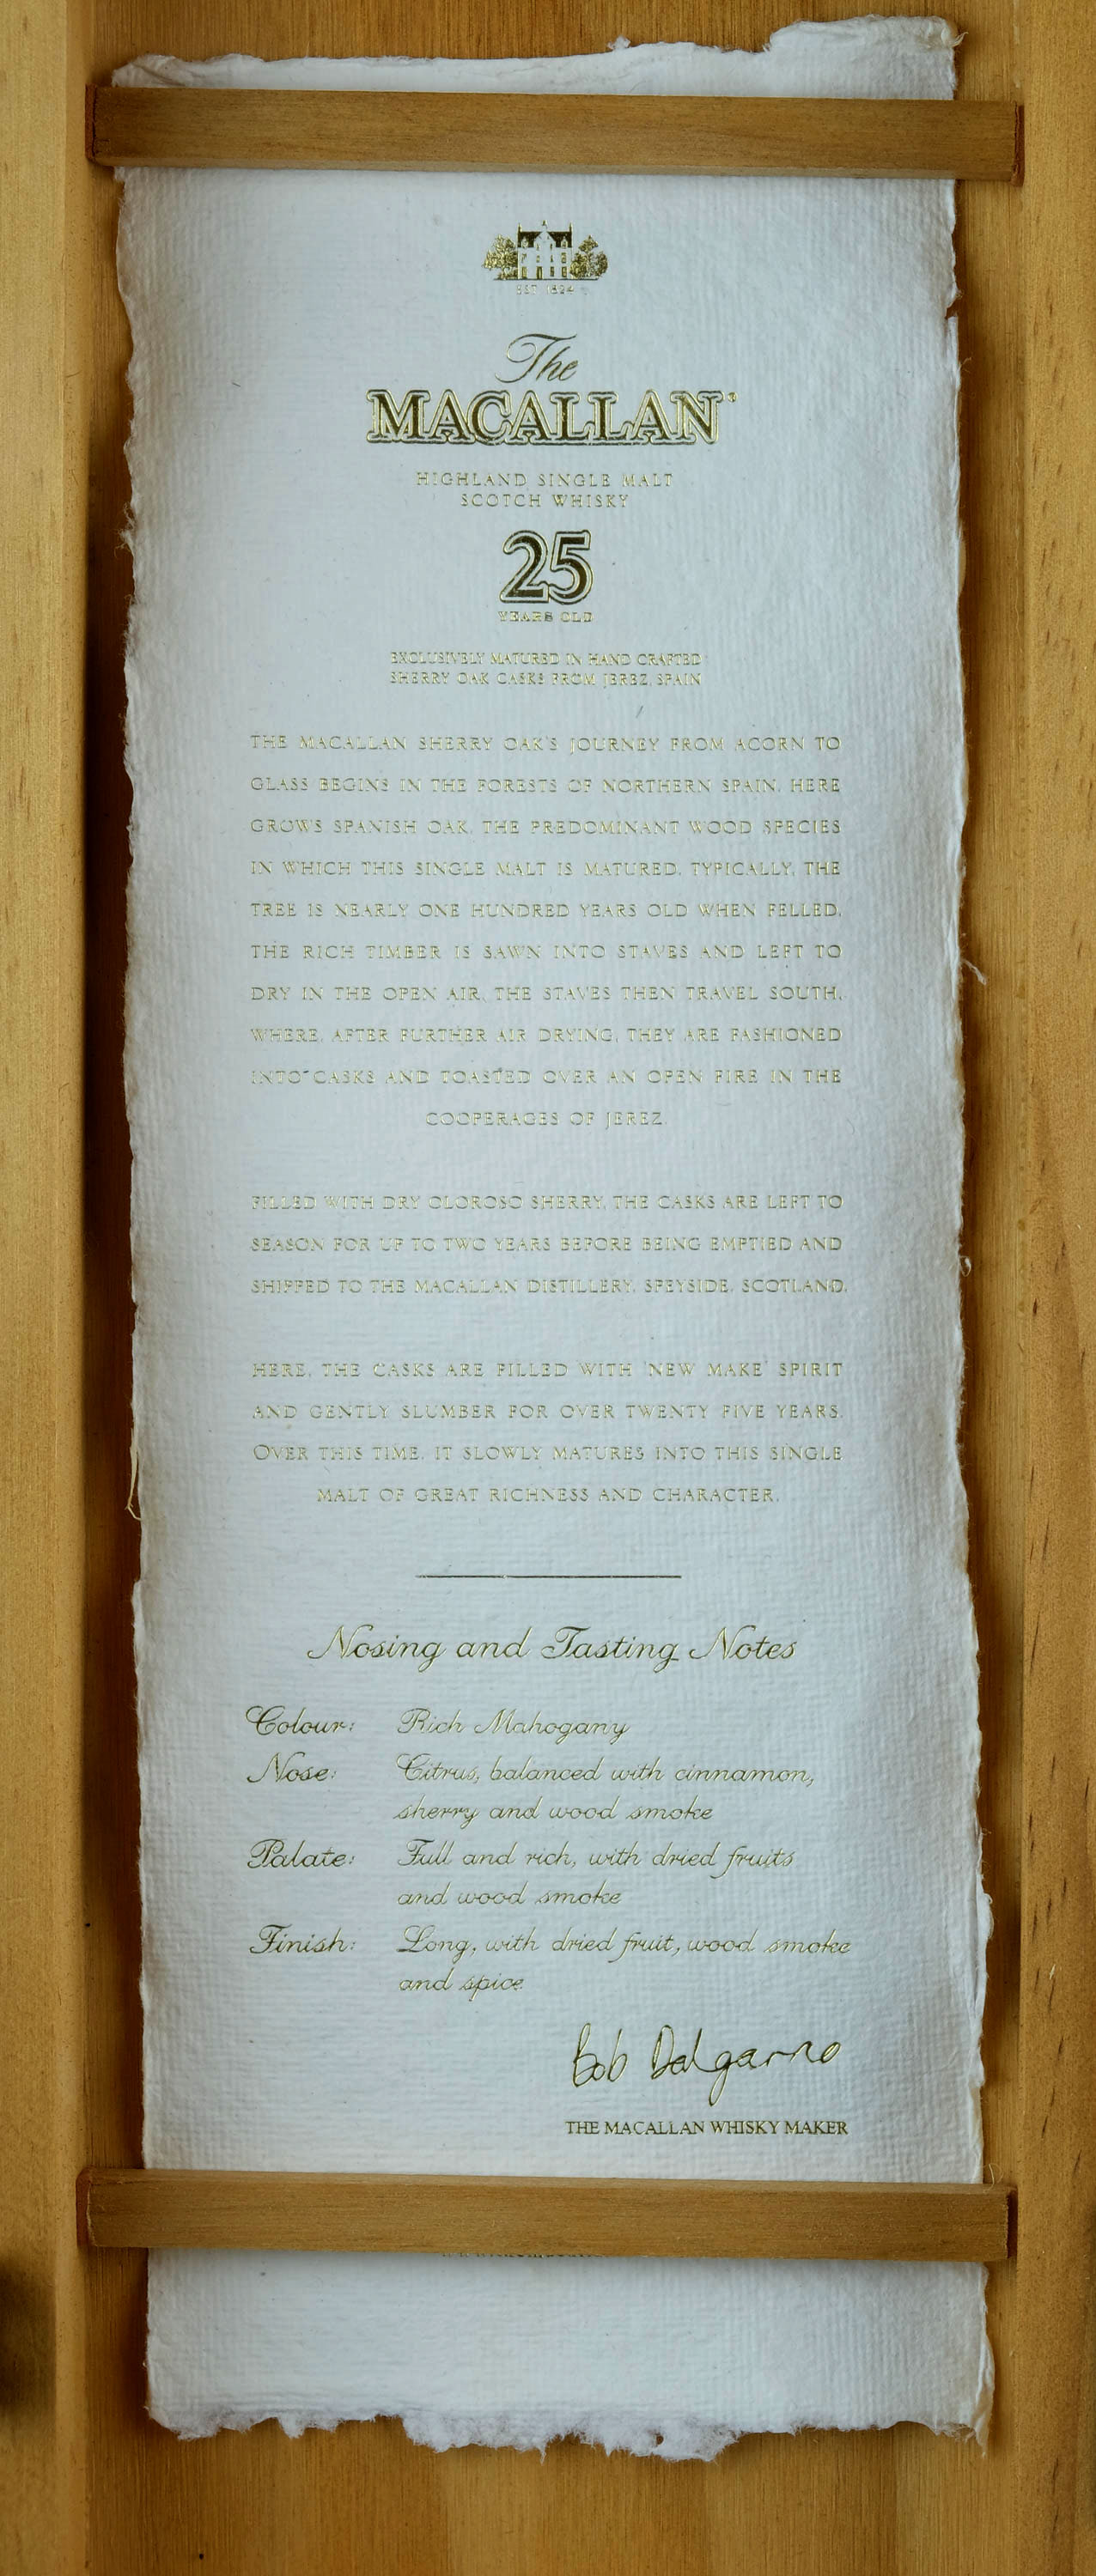 EST 1824
The
MACALLAN®
HIGHLAND SINGLE MALT
SCOTCH WHISKY
25
YEARS OLD
EXCLUSIVELY MATURED IN HAND CRAFTED
SHERRY OAK CASKS FROM JEREZ, SPAIN
THE MACALLAN SHERRY OAK'S JOURNEY FROM ACORN TO
GLASS BEGINS IN THE FORESTS OF NORTHERN SPAIN. HERE
GROWS SPANISH OAK, THE PREDOMINANT WOOD SPECIES
IN WHICH THIS SINGLE MALT IS MATURED. TYPICALLY, THE
TREE IS NEARLY ONE HUNDRED YEARS OLD WHEN FELLED.
THE RICH TIMBER IS SAWN INTO STAVES AND LEFT TO
DRY IN THE OPEN AIR. THE STAVES THEN TRAVEL SOUTH,
WHERE, AFTER FURTHER AIR DRYING, THEY ARE FASHIONED
INTO CASKS AND TOASTED OVER AN OPEN FIRE IN THE
COOPERAGES OF JEREZ.
FILLED WITH DRY OLOROSO SHERRY, THE CASKS ARE LEFT TO
SEASON FOR UP TO TWO YEARS BEFORE BEING EMPTIED AND
SHIPPED TO THE MACALLAN DISTILLERY, SPEYSIDE, SCOTLAND.
HERE, THE CASKS ARE FILLED WITH 'NEW MAKE' SPIRIT
AND GENTLY SLUMBER FOR OVER TWENTY FIVE YEARS.
OVER THIS TIME, IT SLOWLY MATURES INTO THIS SINGLE
MALT OF GREAT RICHNESS AND CHARACTER.
Nosing and Tasting Notes
Colour: Rich Mahogany
Nose: Citrus, balanced with cinnamon,
sherry and wood smoke
Palate: Full and rich, with dried fruits
and wood smoke
Finish: Long, with dried fruit, wood smoke
and spice
Bob Dalgarno
THE MACALLAN WHISKY MAKER